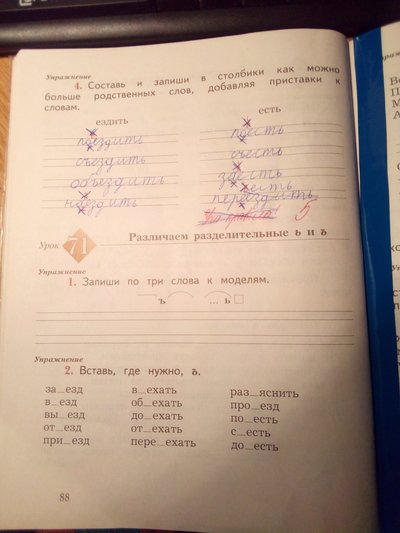 Упражнение
4. Составь и запиши в столбики как можно
больше родственных слов, добавляя приставки к
словам.
ездить есть
поездить поесть
съездить съесть
объездить заесть
наездить
переездить
5
Урок 71 Различаем разделительные ь и ъ
Упражнение
1. Запиши по три слова к моделям.
ъ ... ь
Упражнение
2. Вставь, где нужно, ъ.
за_езд в_ехать раз_яснить
в_езд об_ехать про_езд
вы_езд до_ехать по_есть
от_езд от_ехать с_есть
при_езд пере_ехать до_есть
88